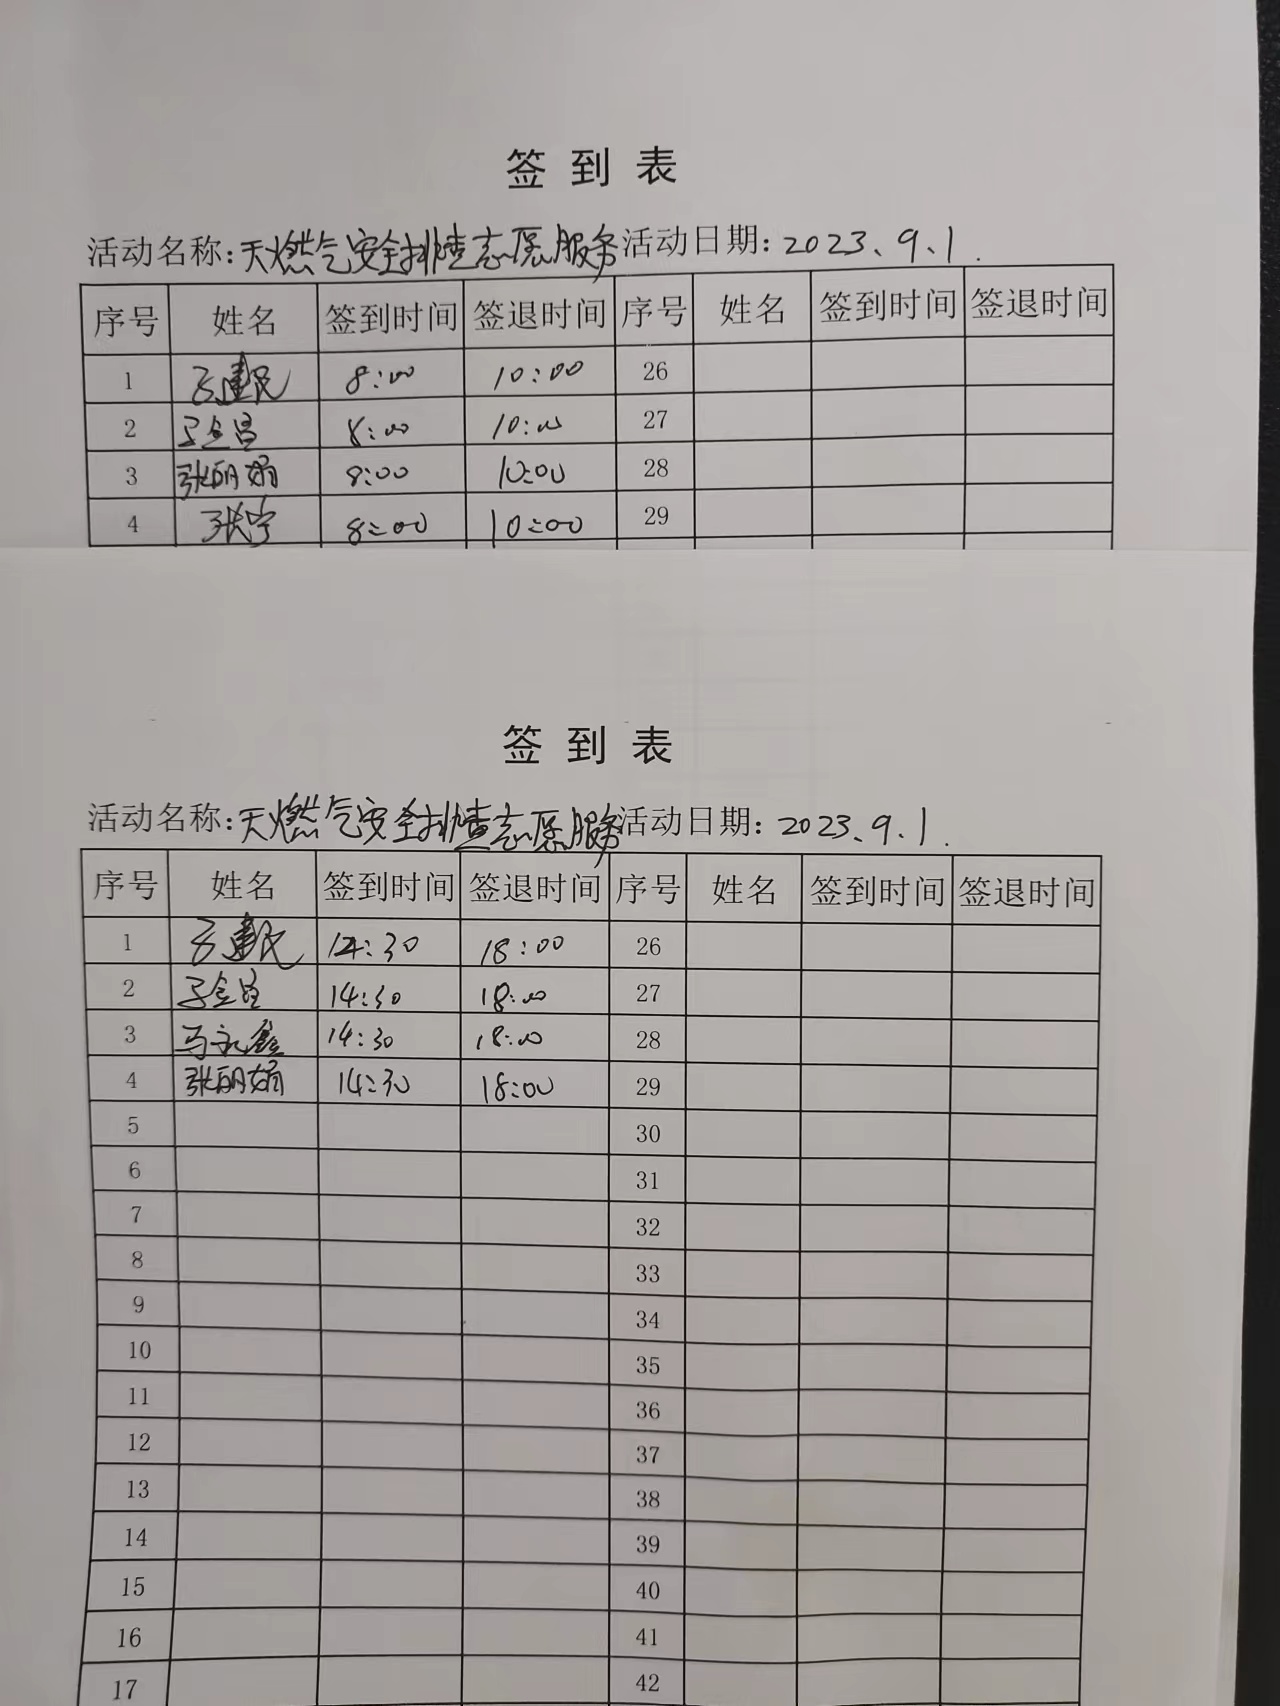 签到表
活动名称:天燃气安全排查志愿服务 活动日期: 2023、9、1.
序号 姓名 签到时间 签退时间 序号 姓名 签到时间 签退时间
1 建民 8:00 10:00 26
2 8:00 10:00 27
3 张丽娟 8:00 10:00 28
4 张宇 8:00 10:00 29
签到表
活动名称:天燃气安全排查志愿服务 活动日期: 2023、9、1.
序号 姓名 签到时间 签退时间 序号 姓名 签到时间 签退时间
1 建民 14:30 18:00 26
2 14:30 18:00 27
3 马永鑫 14:30 18:00 28
4 张丽娟 14:30 18:00 29
5 30
6 31
7 32
8 33
9 34
10 35
11 36
12 37
13 38
14 39
15 40
16 41
17 42